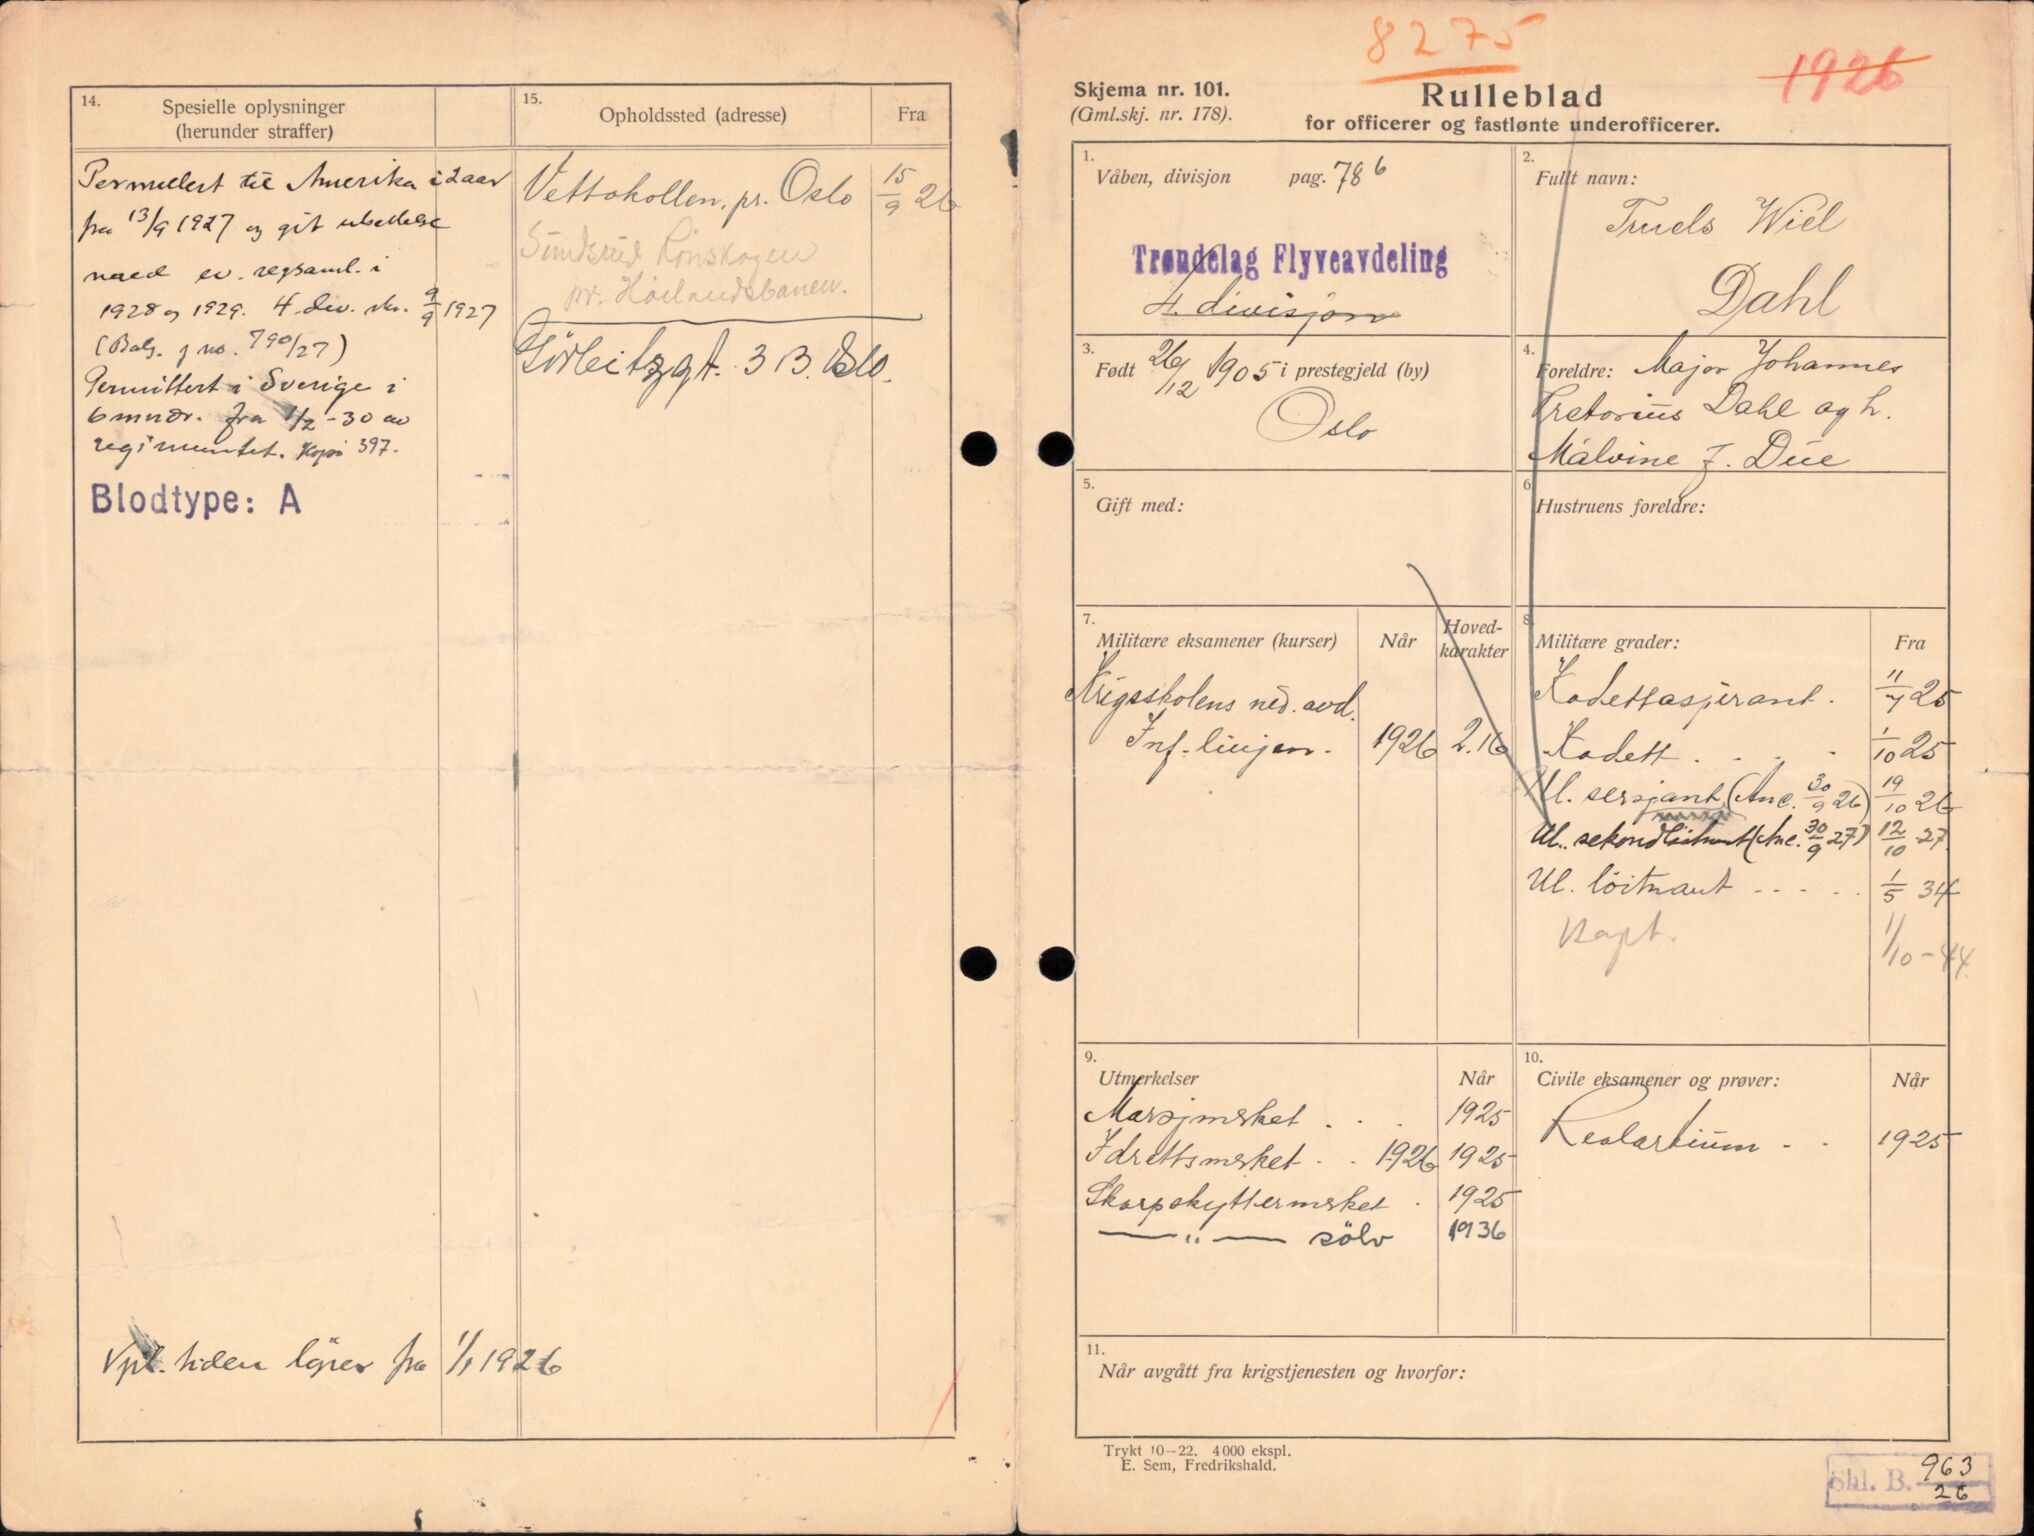 14.
Spesielle oplysninger
(herunder straffer)
Permittert til Amerika i 2 aar
fra 13/9 1927 og git utsettelse
med ev. regsaml. i
1928 og 1929. 4. div. skr. 9/9 1927
(Balj. j no. 790/27)
Permittert i Sverige i
6 mndr. fra 1/2-30 av
regimentet. Kopi 397.
Blodtype: A
Vpl. tiden löper fra 1/1 1926
15.
Opholdssted (adresse)
Fra
Vettakollen, pr. Oslo 15/9 26
Sundsrud Lönskogen
pr. Hölandsbanen.
Görbitzgt. 3 B. Oslo.
8275
1926
Skjema nr. 101.
(Gml.skj. nr. 178).
Rulleblad
for officerer og fastlønte underofficerer.
1.
Våben, divisjon pag. 78 b
Trøndelag Flyveavdeling
4. divisjon
2.
Fullt navn:
Truels Wiel
Dahl
3.
Født 26/12 1905 i prestegjeld (by)
Oslo
4.
Foreldre: Major Johannes
Pretorius Dahl og h.
Malvine J. Due
5.
Gift med:
6.
Hustruens foreldre:
7.
Militære eksamener (kurser) Når Hoved-
karakter
Krigsskolens ned. avd.
Inf. linjen. 1926 2.16
8.
Militære grader: Fra
Kadettaspirant. 11/7 25
Kadett . . . . 1/10 25
Ul. sersjant (Anc. 30/9 26) 19/10 26
Ul. sekondløitnant (Anc. 30/9 27) 12/10 27
Ul. löitnant - - - . . 1/5 34
Kapt. 1/10-44
9.
Utmerkelser Når
Marsjmerket . . . 1925
Idrettsmerket . . 1926 1925
Skarpskyttermerket . 1925
— " — sölv 1936
10.
Civile eksamener og prøver: Når
Realartium - - 1925
11.
Når avgått fra krigstjenesten og hvorfor:
Trykt 10-22. 4000 ekspl.
E. Sem, Fredrikshald.
Shl. B. 963/26